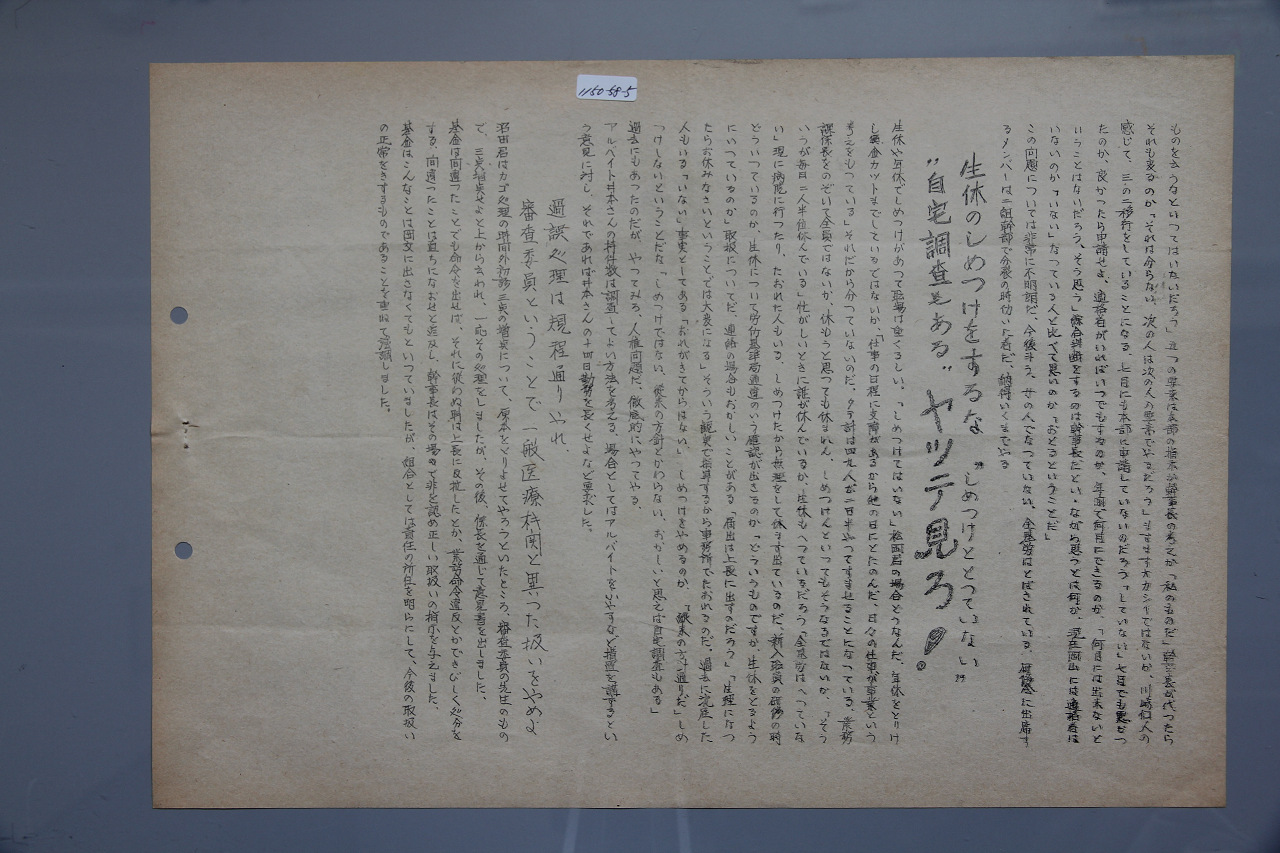 1150-58-5
ものを云うなといつてはいないだろう」
それも変るのか「それは分らない、次の人は次の人の考えでやるだろう」ますますオカシイではないか、
感じて、三の二移行をしていることになる、七月にも本部に申請していないのだろう「していない」七月でも悪かつ
たのか、良かつたら申請せよ、適格者がいればいつでもするのか、年間で何月にできるのか、「何月には出来ないと
いうことはないだろう、そう思う」綜合判断をするのは幹事長だといいながら思うとは何か、現在岡山には適格者は
いないのか「いない」なつている人と比べて悪いのか「おとるということだ」
この問題については非常に不明朗だ、今後斗う、女の人でなつていない、全基労はとばされている、研修会に出席す
るメンバーは二組幹部で分裂の時仂いた者だ、納得いくまでやる
生休のしめつけをするな “しめつけととつていない”
“自宅調査もある” ヤツテ見ろ!
生休や年休でしめつけがあつて職場は重くるしい、「しめつけてはいない」松岡君の場合どうなんだ、年休をとりけ
し賃金カツトまでしているではないか、「仕事の日程に支障があるから他の日にとたのんだ、日々の仕事が事業という
考えをもつている」それだから分つていないのだ、タテ計は四九人が二日半やつてすませることになつている、業務
課係長をのぞいて全員ではないか、休もうと思つても休まれん、しめつけんといつてもそうなるではないか、「そう
いうが毎日二人半位休んでいる」忙がしいときに誰が休んでいるか、生休もへつているだろう「全基労はへつていな
い」現に病院に行つたり、たおれた人もいる、しめつけたから無理をして休まず出ているのだ、新入職員の研修の時
どういつているのか、生休について労仂基準局通達のいう確認が出きるのか「どういうものですか、生休をとるよう
にいつているのか」取扱についてだ、連絡の場合もおかしいことがある「届出は上長に出すのだろう」「生理になつ
たらお休みなさいということでは大変になる」そういう観点で指導するから事務所でたおれるのだ、過去に流産した
人もいる「いない」事実としてある「おれがきてからはない」しめつけをやめるのか、「従来の方針通りだ」しめ
つけしないということだな「しめつけではない、従来の方針とかわらない、おかしいと思えば自宅調査もある」
過去にもあつたのだが、やつてみろ、人権問題だ、徹底的にやつてやる、
アルバイト井本さんの持件数は調査してよい方法を考える、場合としてはアルバイトをいやすなど措置を講ずるとい
う意見に対し、それであれば井本さんの十四日勤務を長くせよなど要求した。
過誤処理は規程通りやれ、
審査委員ということで一般医療機関と異つた扱いをやめよ
沼田君はカゴ処理の時間外初診三点の増点について、原本をとりよせてやろうといたところ、審査委員の先生のもの
で、三点増点せよと上から云われ、一応その処理をしましたが、その後、係長を通じて意見書を出しました、
基金は間違つたことでも命令を出せば、それに従わぬ時は上長に反抗したとか、業務命令違反とかできびしく処分を
する、間違つたことは直ちになおせと追及し、幹事長はその場で非を認め正しい取扱いの指示を与えました、
基金はこんなことは図文に出さなくてもといつていましたが、組合としては責任の所在を明らにして、今後の取扱い
の正常をきするものであることを重ねて強調しました。